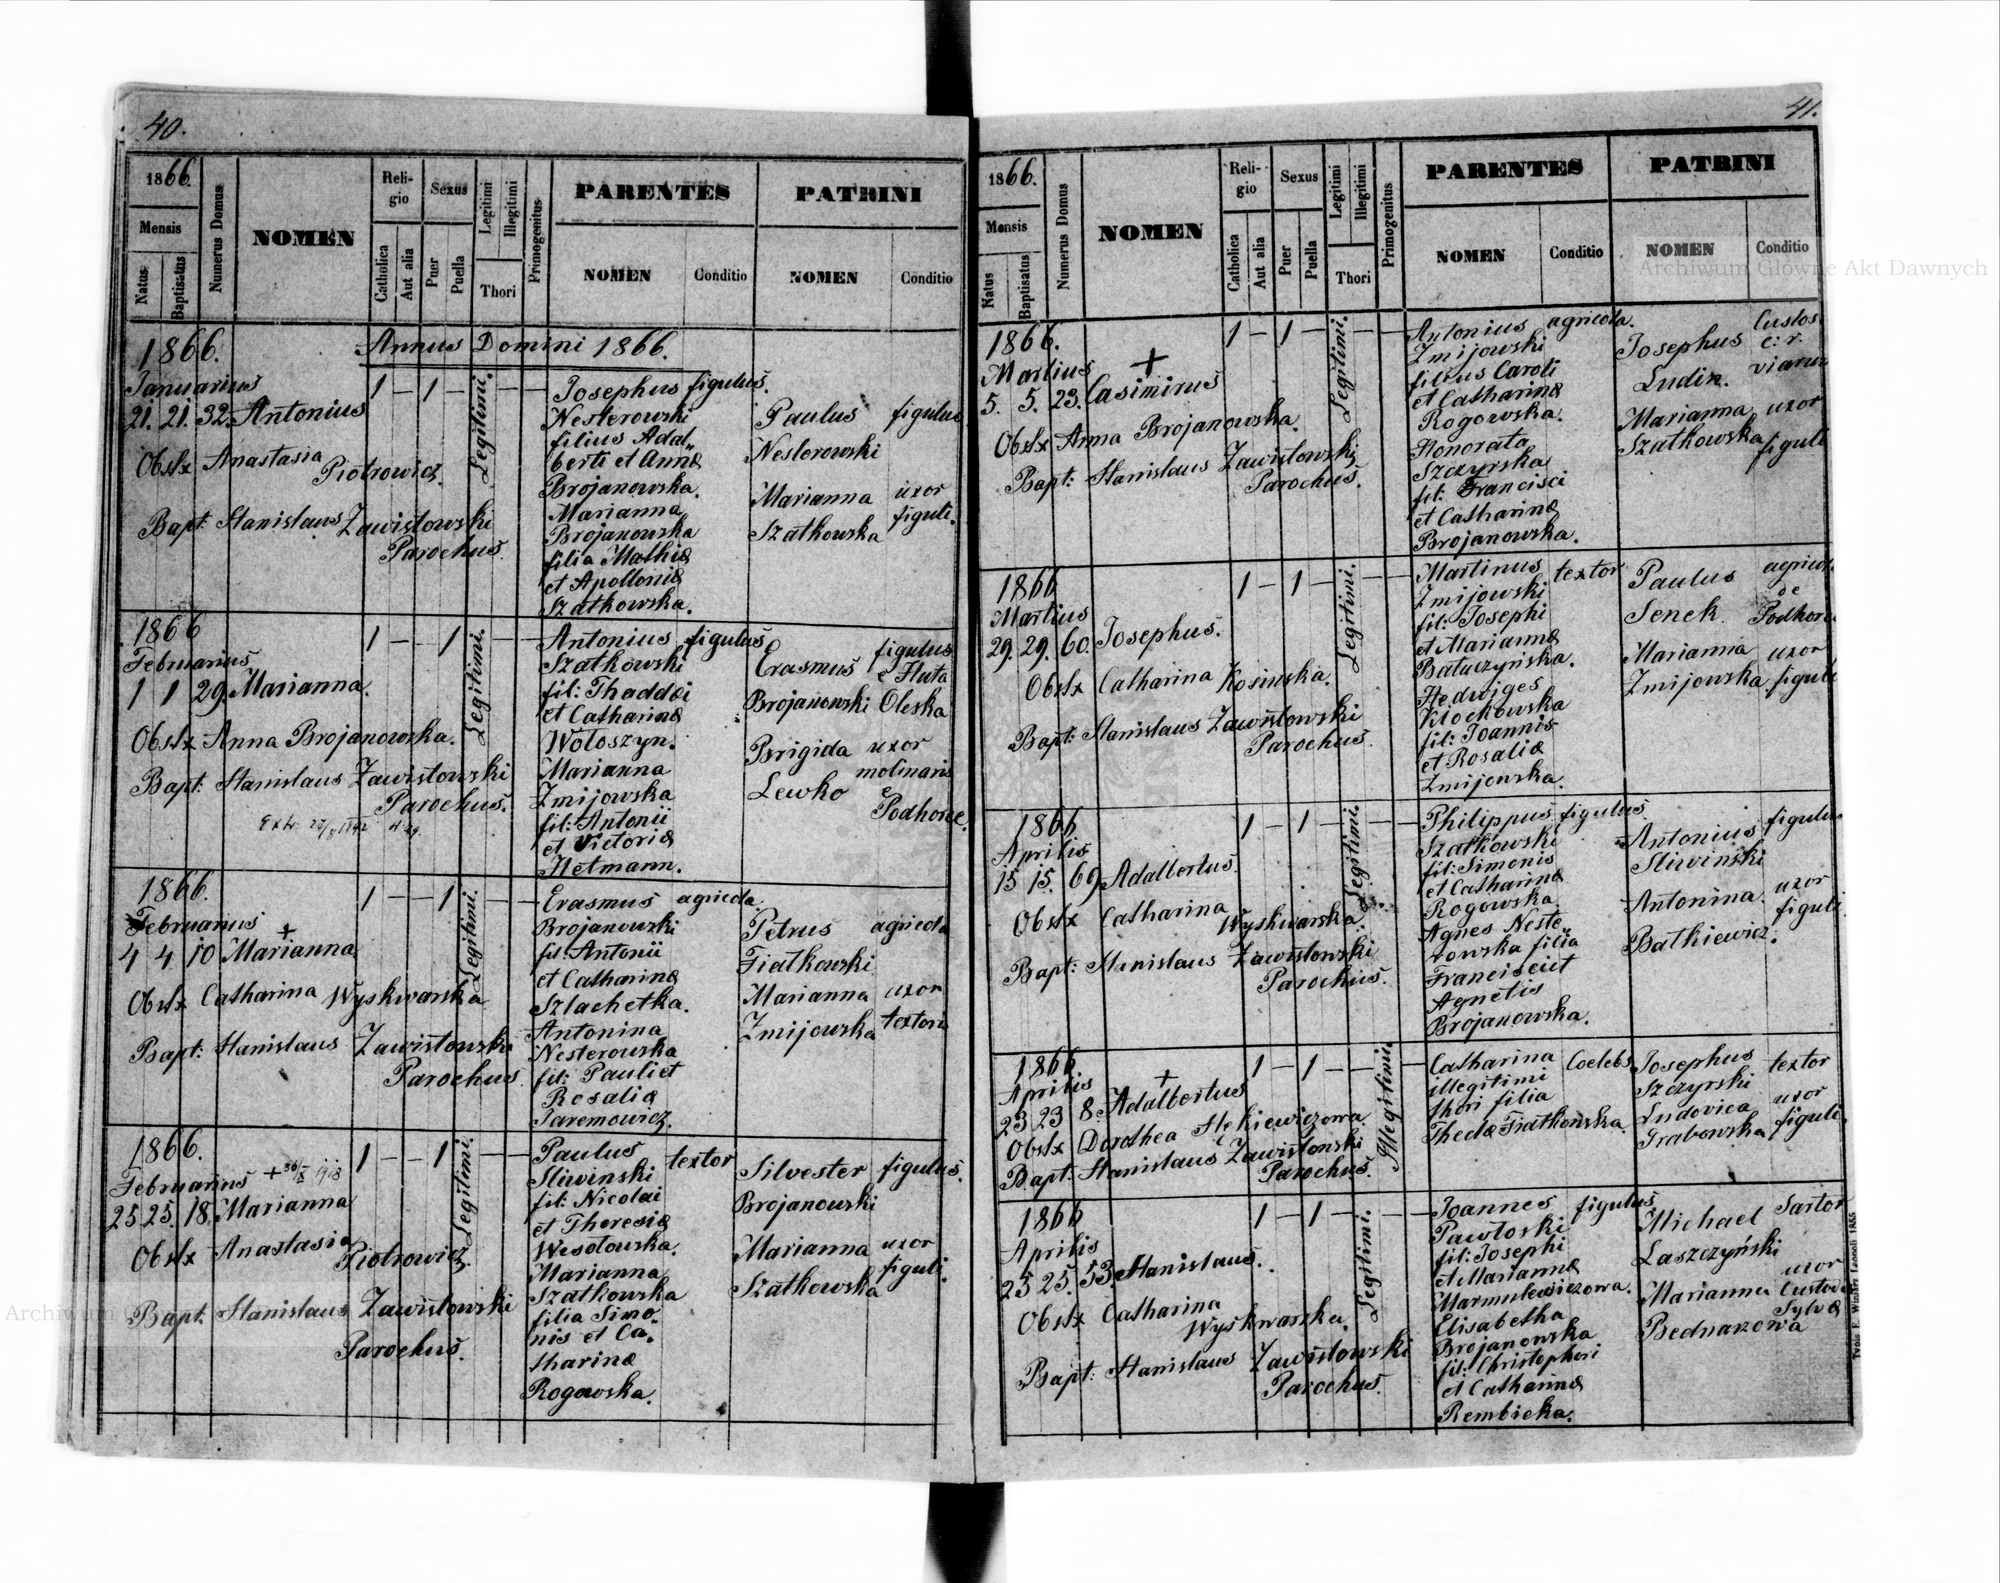 40.
1866.
Mensis
Natus
Baptisatus
Numerus Domus
NOMEN
Religio
Catholica
Aut alia
Sexus
Puer
Puella
Legitimi
Illegitimi
Thori
Primogenitus
PARENTES
NOMEN
Conditio
PATRINI
NOMEN
Conditio
Annus Domini 1866.
1866.
Januarius
21. 21. 32. Antonius
Obstx Anastasia
Piotrowicz.
Bapt: Stanislaus Zawistowski
Parochus.
1 — 1 — —
Legitimi.
Josephus figulus.
Nesterowski
filius Adal„
berti et Annæ
Brojanowska.
Marianna
Brojanowska
filia Mathiæ
et Apolloniæ
Szatkowska.
Paulus figulus
Nesterowski
Marianna uxor
figuli.
Szatkowska
1866
Februarius
1 1 29. Marianna.
Obstx Anna Brojanowska.
Bapt: Stanislaus Zawistowski
Parochus.
1 — 1 — —
Legitimi.
Antonius figulus
Szatkowski
fil: Thaddæi
et Catharinæ
Wołoszyn.
Marianna
Zmijowska
fil: Antonii
et Victoriæ
Hetmann.
Erasmus figulus
e Huta
Brojanowski Oleska
Brigida uxor
molinaris
Lewko e
Podhorce.
1866.
Februarius
4 4 10 Marianna
+
Obstx Catharina Wyskwarska
Bapt: Stanislaus Zawistowski
Parochus
1 — 1 — —
Legitimi.
Erasmus agricola.
Brojanowski
fil: Antonii
et Catharinæ
Szlachetka.
Antonina
Nesterowska
fil: Pauli et
Rosaliæ
Jaremowicz.
Petrus agricola
Fiatkowski
Marianna uxor
Zmijowska textoris
1866.
Februarius + 30/X 1918
25 25. 18. Marianna
Obstx Anastasia
Piotrowicz.
Bapt: Stanislaus Zawistowski
Parochus.
1 — 1 — —
Legitimi.
Paulus textor
Sliwinski
fil: Nicolai
et Theresiæ
Wesołowska.
Marianna
Szatkowska
filia Simo„
nis et Ca„
tharinæ
Rogowska.
Silvester figulus.
Brojanowski
Marianna uxor
figuli.
Szatkowska
41.
1866.
Mensis
Natus
Baptisatus
Numerus Domus
NOMEN
Religio
Catholica
Aut alia
Sexus
Puer
Puella
Legitimi
Illegitimi
Thori
Primogenitus
PARENTES
NOMEN
Conditio
PATRINI
NOMEN
Conditio
1866.
Martius
5. 5. 23. Casimirus
+
Obstx Anna Brojanowska.
Bapt: Stanislaus Zawistowski
Parochus.
1 — 1 — —
Legitimi.
Antonius agricola.
Zmijowski
filius Caroli
et Catharinæ
Rogowska.
Honorata
Szczyrska
fil: Francisci
et Catharinæ
Brojanowska.
Josephus Custos
c: r.
Ludin. viarum
Marianna uxor
Szatkowska figuli
1866
Martius
29. 29. 60. Josephus.
Obstx Catharina Kosinska.
Bapt: Stanislaus Zawistowski
Parochus.
1 — 1 — —
Legitimi.
Martinus textor
Zmijowski
fil: Josephi
et Mariannæ
Batuczyńska.
Hedwiges
Kłochowska
fil: Joannis
et Rosaliæ
Zmijowska.
Paulus agricola
de
Senek. Podhorce
Marianna uxor
Zmijowska figuli
1866
Aprilis
15 15. 69. Adalbertus.
Obstx Catharina
Wyskwarska.
Bapt: Stanislaus Zawistowski
Parochus.
1 — 1 — —
Legitimi.
Philippus figulus.
Szatkowski
fil: Simonis
et Catharinæ
Rogowska.
Agnes Neste„
rowska filia
Francisci et
Agnetis
Brojanowska.
Antonius figulus
Sliwinski
Antonina uxor
figuli.
Batkiewicz.
1866
Aprilis
23 23 8. Adalbertus
+
Obstx Dorothea
Bapt: Stanislaus Zawistowski
Parochus.
1 — 1 — —
Illegitimi
Catharina Coelebs
illegitimi
thori filia
Theclæ Fiatkowska.
Josephus textor
Szczyrski
Ludovica uxor
Grabowska figuli.
1866
Aprilis
25 25. 53. Stanislaus.
Obstx Catharina
Wyskwarska.
Bapt: Stanislaus Zawistowski
Parochus.
1 — 1 — —
Legitimi.
Joannes figulus
Pawłoski
fil: Josephi
et Mariannæ
Marmulewiczowa.
Elisabetha
Brojanowska
fil: Christophori
et Catharinæ
Rembicka.
Michael Sartor
Laszczyński
uxor
Marianna Custodis
Sylvæ
Bednarzowa
Typis E. Winiarz Leopoli 1855
Archiwum Główne Akt Dawnych